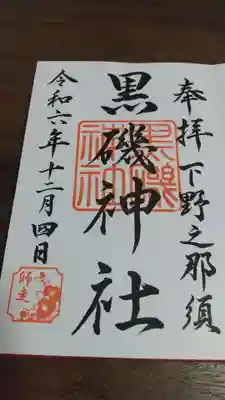 奉拝 下野之那須
黒磯神社
令和六年十二月四日
師走